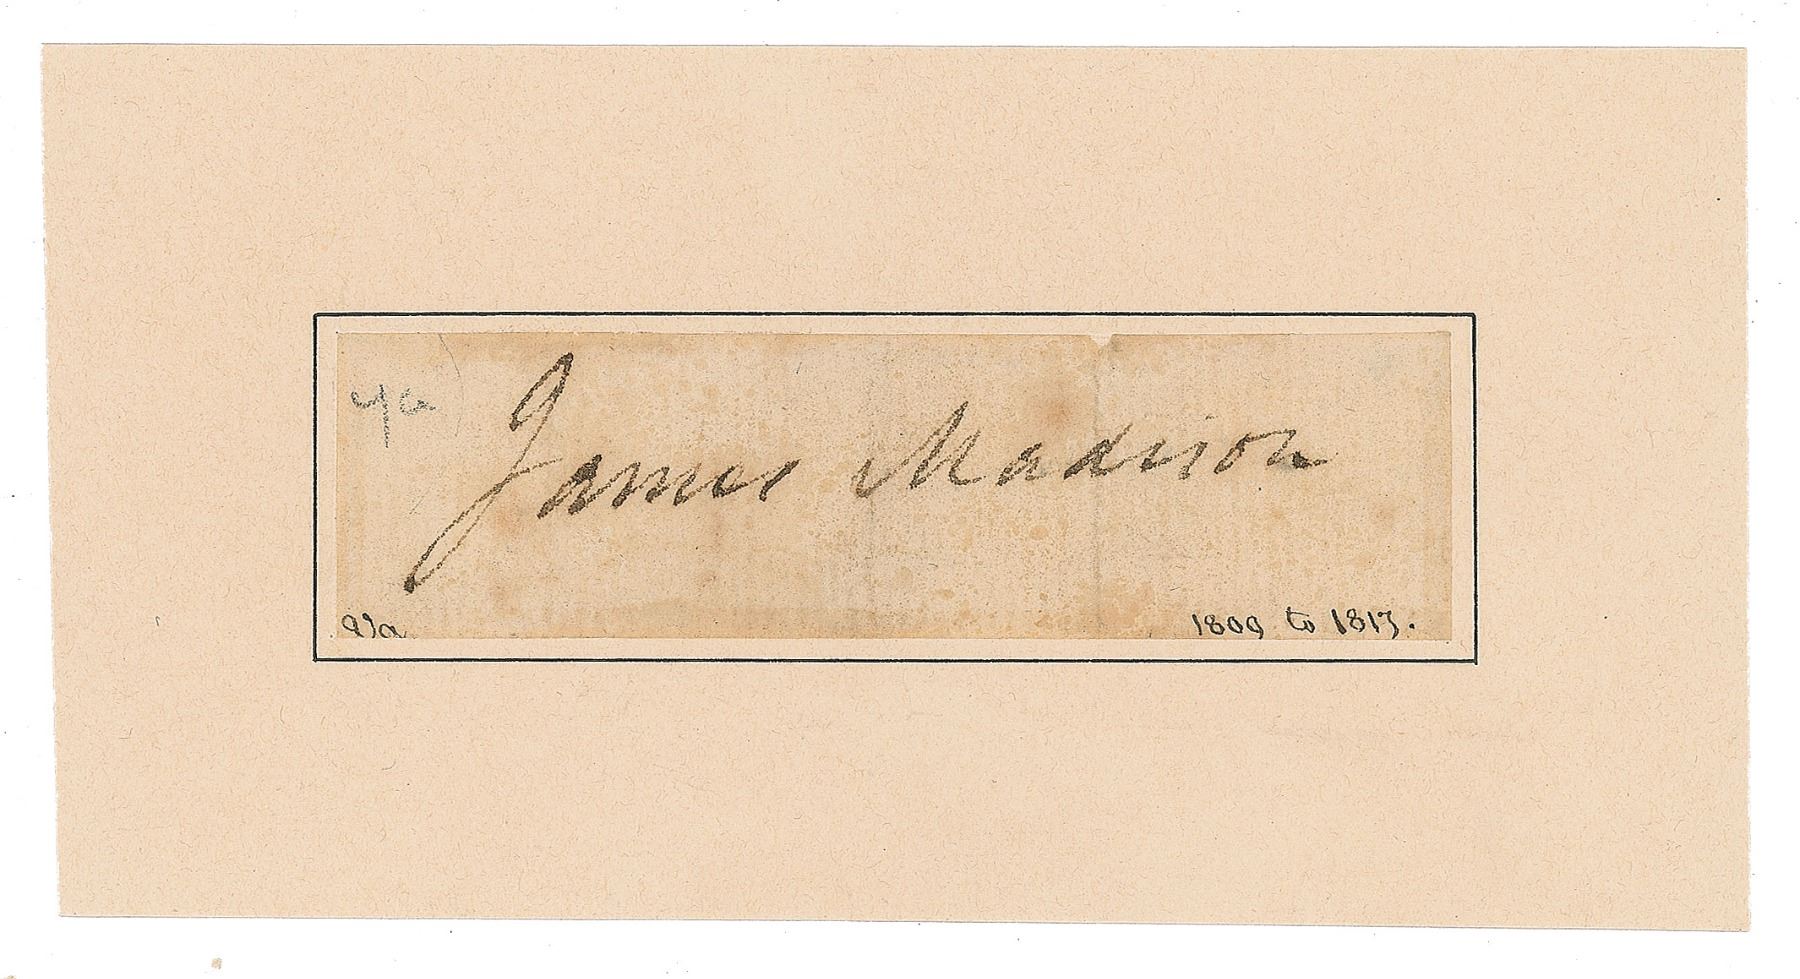 James Madison
Va
1809 to 1817.